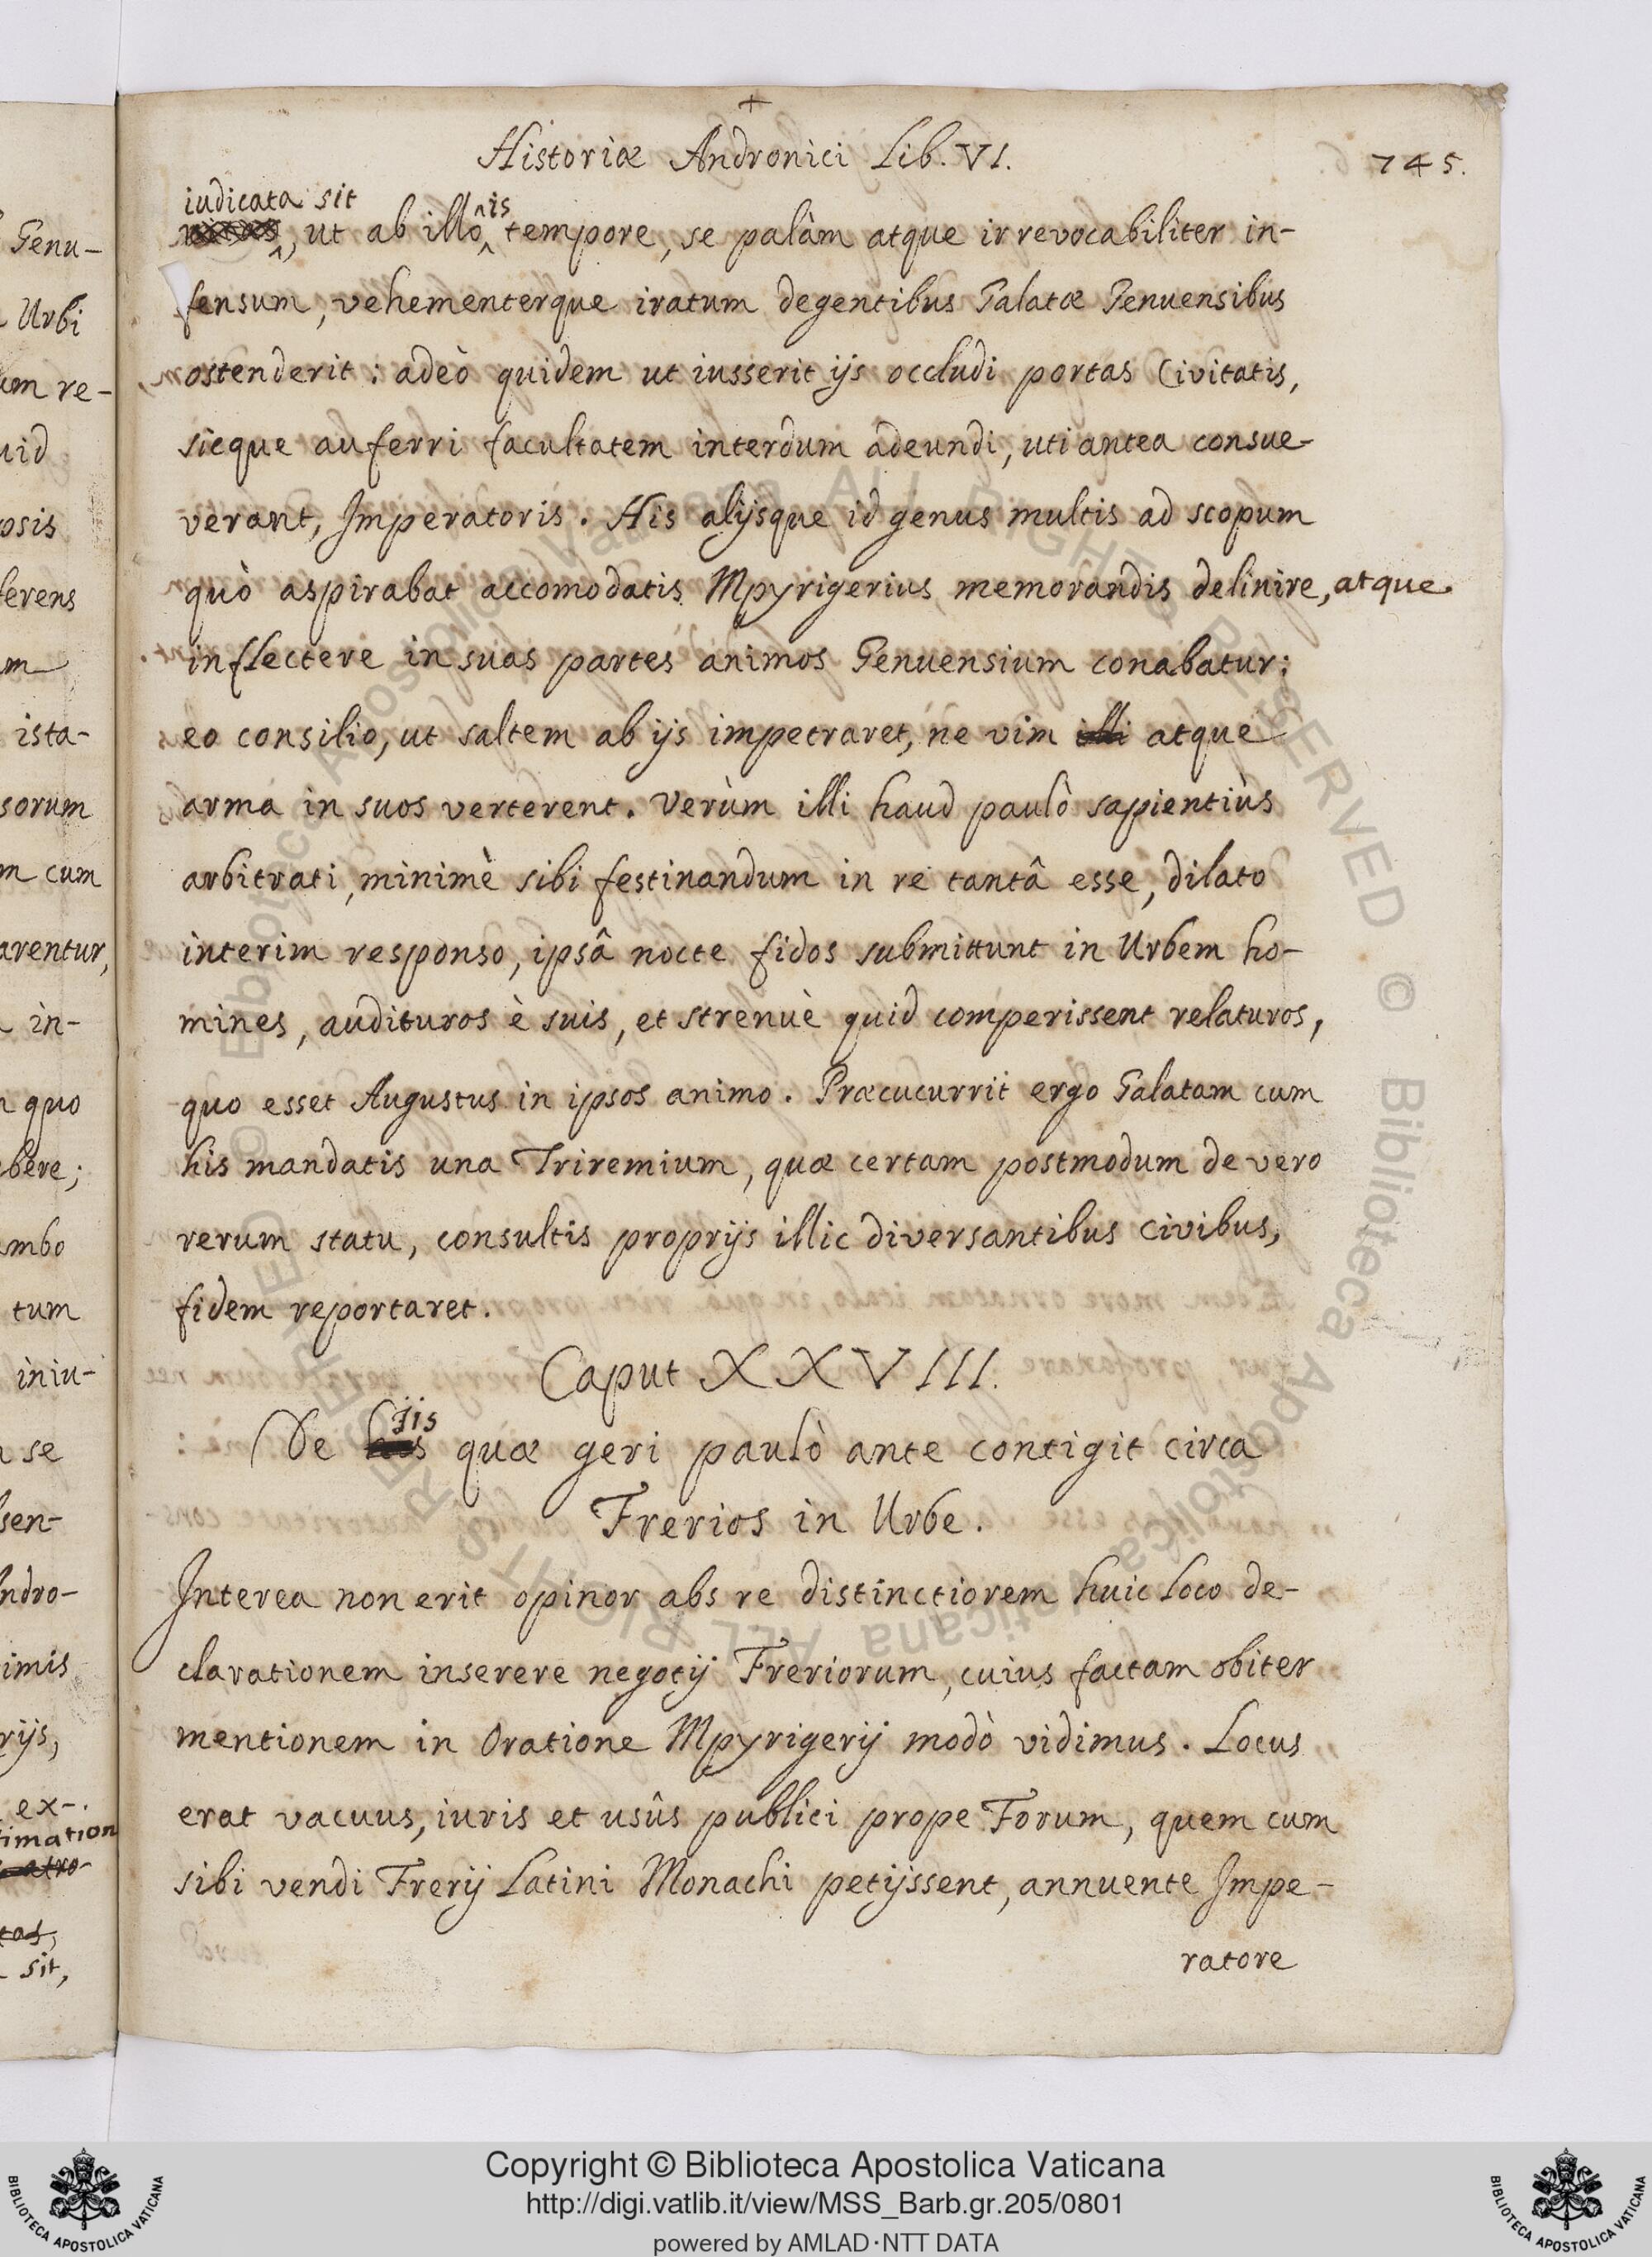 +
Historiæ Andronici Lib. VI.
745.
iudicata sit
^is
, ut ab illo tempore, se palàm atque irrevocabiliter in-
fensum, vehementerque iratum degentibus Galatæ Genuensibus
ostenderit: adeò quidem ut iusserit ijs occludi portas Civitatis,
sicque auferri facultatem interdum adeundi, uti antea consue-
verant, Imperatoris. His alijsque id genus multis ad scopum
quò aspirabat accomodatis Mpyrigerius memorandis delinire, atque
inflectere in suas partes animos Genuensium conabatur:
eo consilio, ut saltem ab ijs impetraret, ne vim illi atque
arma in suos verterent. Verùm illi haud paulò sapientiùs
arbitrati, minimè sibi festinandum in re tantâ esse, dilato
interim responso, ipsâ nocte fidos submittunt in Urbem ho-
mines, audituros è suis, et strenuè quid comperissent relaturos,
quo esset Augustus in ipsos animo. Præcucurrit ergo Galatam cum
his mandatis una Triremium, quæ certam postmodum de vero
rerum statu, consultis proprijs illic diversantibus civibus,
fidem reportaret.
Caput XXVIII.
ijs
De his quæ geri paulò ante contigit circa
Frerios in Urbe.
Interea non erit opinor abs re distinctiorem huic loco de-
clarationem inserere negotij Freriorum, cuius factam obiter
mentionem in Oratione Mpyrigerij modò vidimus. Locus
erat vacuus, iuris et usûs publici prope Forum, quem cum
sibi vendi Frerij Latini Monachi petijssent, annuente Impe-
ratore
Genu-
Urbi
um re-
uid
osis
ferens
m
ista-
sorum
m cum
arentur,
in-
quo
bere;
ambo
tum
iniu-
se
sen-
ndro-
imis
rijs,
ex-
timation
atro-
tas,
sit,
Copyright © Biblioteca Apostolica Vaticana
http://digi.vatlib.it/view/MSS_Barb.gr.205/0801
powered by AMLAD·NTT DATA
BIBLIOTECA APOSTOLICA VATICANA
BIBLIOTECA APOSTOLICA VATICANA
© Biblioteca Apostolica Vaticana ALL RIGHTS RESERVED © Biblioteca Apostolica Vaticana ALL RIGHTS RESERVED